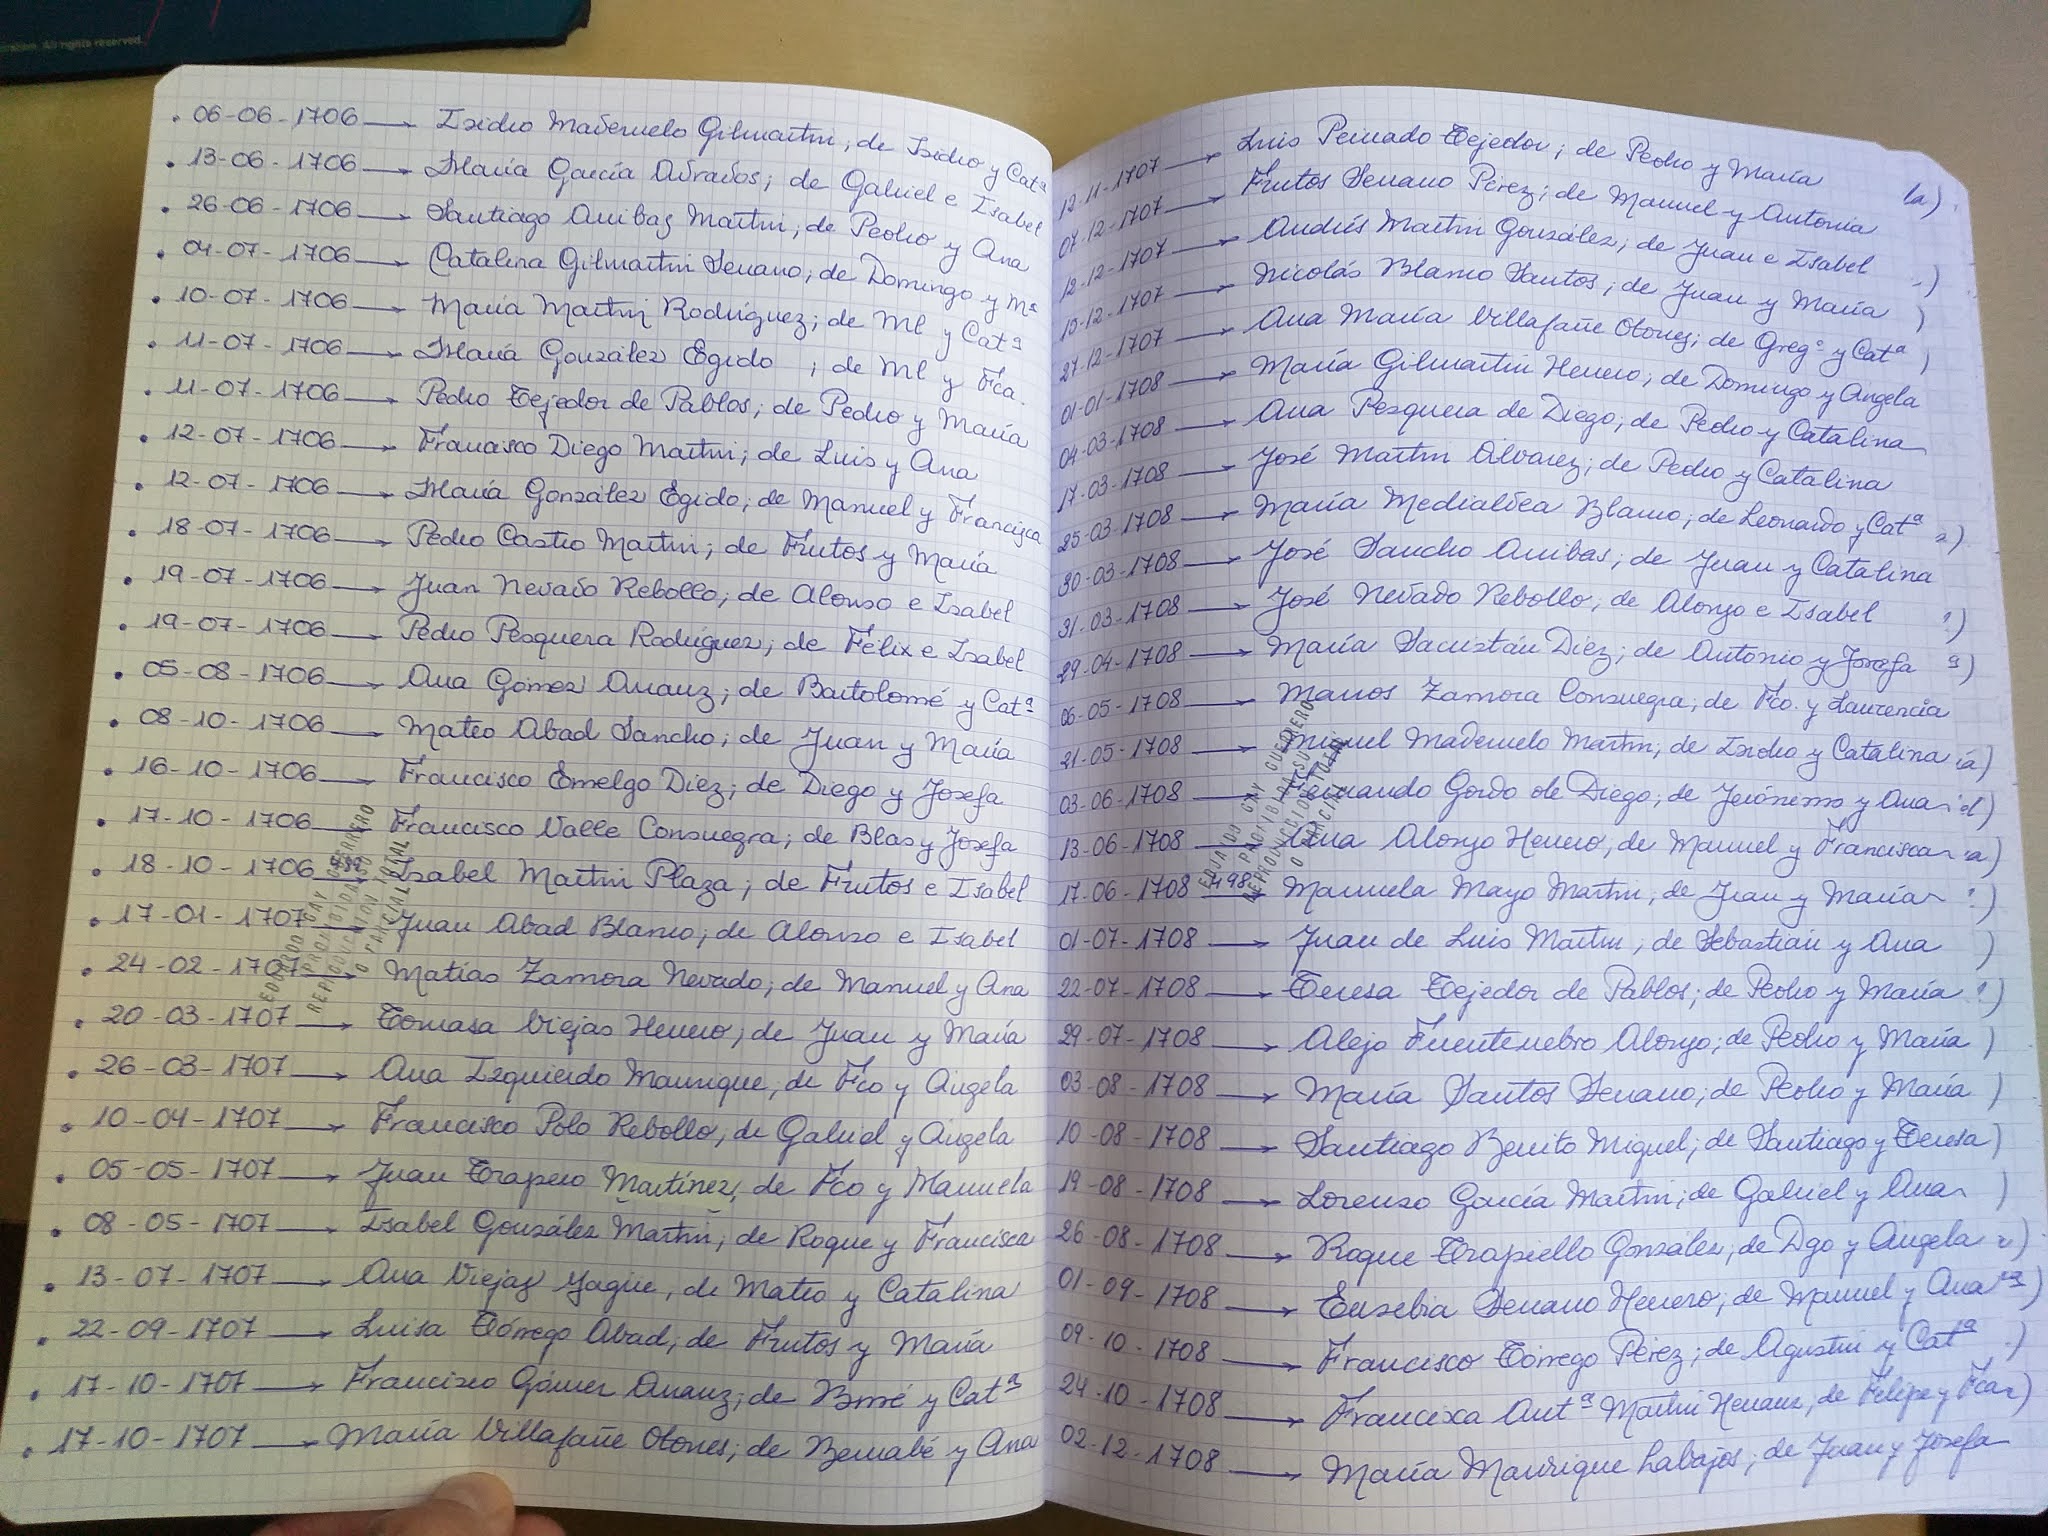 All rights reserved.
06-06-1706 → Isidro Maderuelo Gilmartín, de Isidro y Catª
13-06-1706 → María García Adrados; de Gabriel e Isabel
26-06-1706 → Santiago Arribas Martín, de Pedro y Ana
04-07-1706 → Catalina Gilmartín Serrano, de Domingo y Mª
10-07-1706 → María Martín Rodríguez; de Ml y Catª
11-07-1706 → María González Egido ; de Ml y Fca.
11-07-1706 → Pedro Tejedor de Pablos; de Pedro y María
12-07-1706 → Francisco Diego Martín; de Luis y Ana
12-07-1706 → María González Egido; de Manuel y Francisca
18-07-1706 → Pedro Castro Martín; de Frutos y María
19-07-1706 → Juan Nevado Rebollo; de Alonso e Isabel
19-07-1706 → Pedro Pesquera Rodríguez; de Félix e Isabel
05-08-1706 → Ana Gómez Arranz; de Bartolomé y Catª
08-10-1706 → Mateo Abad Sancho; de Juan y María
16-10-1706 → Francisco Emelgo Diez; de Diego y Josefa
17-10-1706 → Francisco Valle Consuegra; de Blas y Josefa
18-10-1706 → Isabel Martín Plaza; de Frutos e Isabel
17-01-1707 → Juan Abad Blanco; de Alonso e Isabel
24-02-1707 → Matías Zamora Nevado; de Manuel y Ana
20-03-1707 → Tomasa Viejas Herrero; de Juan y María
26-03-1707 → Ana Izquierdo Manrique, de Fco y Angela
10-04-1707 → Francisco Polo Rebollo, de Gabriel y Angela
05-05-1707 → Juan Trapero Martínez, de Fco y Manuela
08-05-1707 → Isabel González Martín, de Roque y Francisca
13-07-1707 → Ana Viejas Yagüe, de Mateo y Catalina
22-09-1707 → Luisa Tórrego Abad, de Frutos y María
17-10-1707 → Francisco Gómez Arranz; de Bmé y Catª
17-10-1707 → María Villafañe Otones; de Bernabé y Ana
EDUARDO GAY GUERRERO
PROHIBIDA SU
REPRODUCCION TOTAL
O PARCIAL
12-11-1707 → Luis Peinado Tejedor; de Pedro y María
07-12-1707 → Frutos Serrano Pérez; de Manuel y Antonia
12-12-1707 → Andrés Martín González; de Juan e Isabel
15-12-1707 → Nicolás Blanco Santos; de Juan y María
27-12-1707 → Ana María Villafañe Otones; de Gregº y Catª
01-01-1708 → María Gilmartín Herrero; de Domingo y Angela
04-03-1708 → Ana Pesquera de Diego; de Pedro y Catalina
17-03-1708 → José Martín Alvarez; de Pedro y Catalina
25-03-1708 → María Medialdea Blanco; de Leonardo y Catª
30-03-1708 → José Sancho Arribas; de Juan y Catalina
31-03-1708 → José Nevado Rebollo, de Alonzo e Isabel
29-04-1708 → María Sacristán Diez; de Antonio y Josefa
06-05-1708 → Marcos Zamora Consuegra; de Fco. y Laurencia
21-05-1708 → Miguel Maderuelo Martín, de Isidro y Catalina
03-06-1708 → Fernando Gordo de Diego; de Jerónimo y Ana
13-06-1708 → Ana Alonzo Herrero, de Manuel y Francisca
17-06-1708 → Manuela Mayo Martín, de Juan y María
01-07-1708 → Juan de Luis Martín, de Sebastián y Ana
22-07-1708 → Teresa Tejedor de Pablos; de Pedro y María
29-07-1708 → Alejo Fuentenebro Alonzo; de Pedro y María
03-08-1708 → María Santos Serrano; de Pedro y María
10-08-1708 → Santiago Benito Miguel; de Santiago y Teresa
19-08-1708 → Lorenzo García Martín; de Gabriel y Ana
26-08-1708 → Roque Trapiello González, de Dgo y Angela
01-09-1708 → Eusebia Serrano Herrero; de Manuel y Ana
09-10-1708 → Francisco Tórrego Pérez; de Agustín y Catª
24-10-1708 → Francisca Antª Martín Herranz, de Felipe y Fca
02-12-1708 → María Manrique Labajos; de Juan y Josefa
EDUARDO GAY GUERRERO
PROHIBIDA SU
REPRODUCCION TOTAL
O PARCIAL